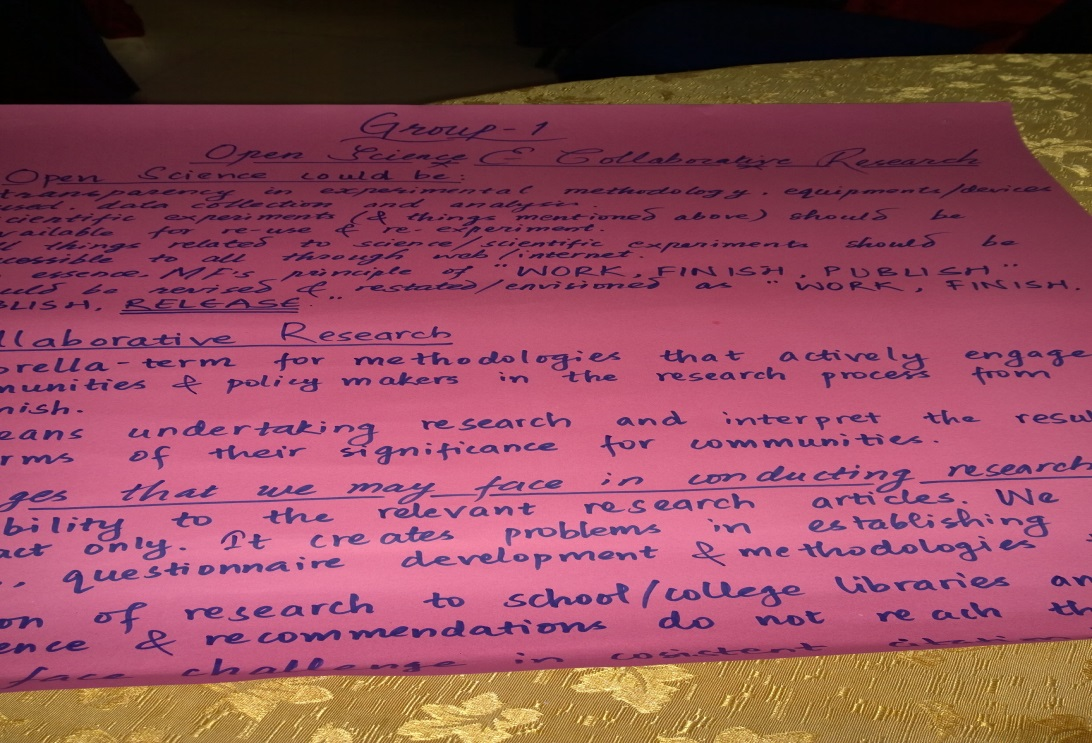 Group-1
Open Science & Collaborative Research
Open Science could be:
transparency in experimental methodology, equipments/devices
data collection and analysis.
scientific experiments (& things mentioned above) should be
available for re-use & re-experiment.
things related to science/scientific experiments should be
accessible to all through web/internet.
essence, MF's principle of "WORK, FINISH, PUBLISH"
be revised & restated/envisioned as "WORK, FINISH.
BLISH, RELEASE."
llaborative Research
rella-term for methodologies that actively engage
munities & policy makers in the research process from
nish.
eans undertaking research and interpret the resu
rms of their significance for communities.
ges that we may face in conducting research
bility to the relevant research articles. We
act only. It creates problems in establishing
questionnaire development & methodologies
on of research to school/college libraries an
ence & recommendations do not reach th
face challenge in cosistent